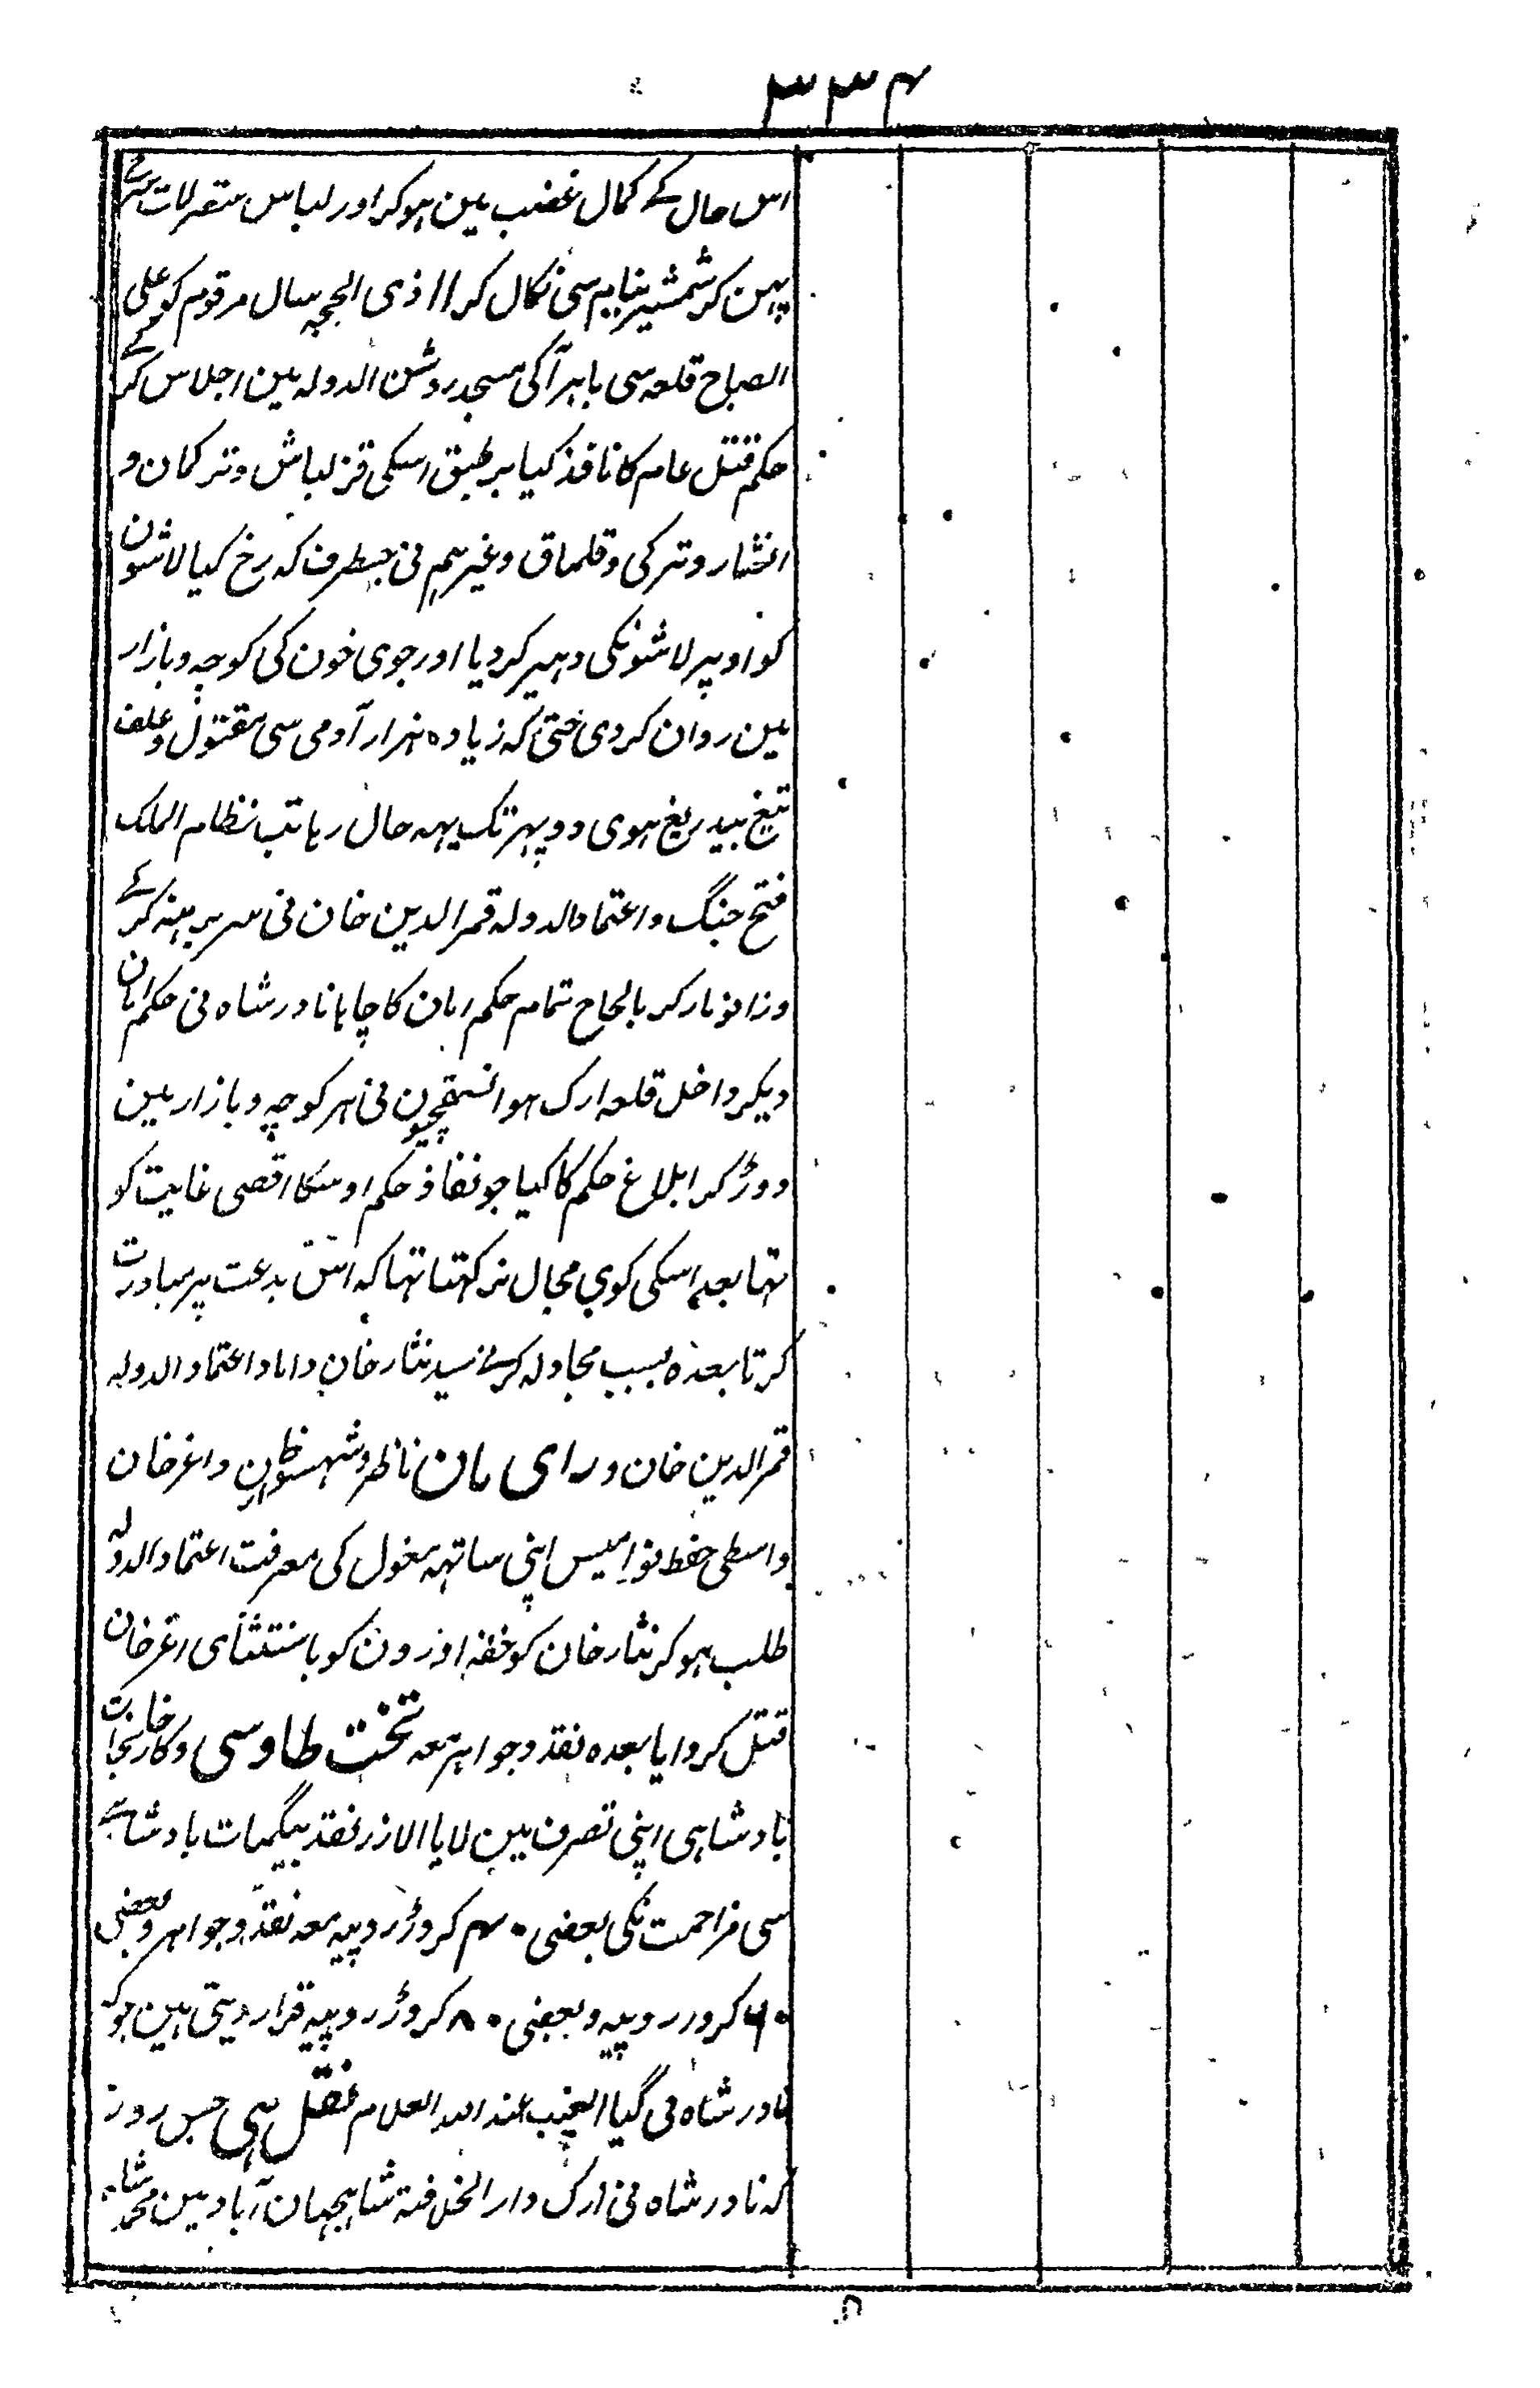 ۳۳۴
اس حال کے کمال غضب مین ہوکر اور لباس سقرلات سرخ
پہن کر شمشیر نیام سی نکال کر ۱۱ ذی الحجہ سال مرقوم کو علی
الصباح قلعہ سی باہر آ کی مسجد روشن الدولہ مین اجلاس کرکے
حکم قتل عام کا نافذ کیا بر طبق اسکی قزلباش و ترکمان و
افشار و ترکی و قلماق و غیرہم نی جسطرف کہ رخ کیا لاشون
کو اوپر لاشونکی دہیر کردیا اور جوی خون کی کوچہ و بازار
مین روان کردی حتیٰ کہ زیادہ ہزار آدمی سی مقتول و علف
تیغ بیدریغ ہوی دوپہر تک یہہ حال رہا تب نظام الملک
فتح جنگ و اعتماد الدولہ قمر الدین خان نی سر برہنہ کرکے
و زانو مار کر بالحاح تمام حکم امان کا چاہا نادر شاہ نی حکم امان
دیکر داخل قلعہ ارک ہوا نسقچیون نی ہر کوچہ و بازار مین
دوڑ کر ابلاغ حکم کا کیا جو نفاذ حکم اوسکا اقصی غایت کو
تہا بعد اسکی کوی مجال نرکہتا تہا کہ اس بدعت پر مبادرت
کرتا بعدہ بسبب مجادلہ کرنے سید نثار خان داماد اعتماد الدولہ
قمر الدین خان و رای مان ناظر و شہسوار خان و اغر خان
واسطی حفظ نوامیس اپنی ساتہہ مغول کی معرفت اعتماد الدولہ
طلب ہوکر نثار خان کو خفہ اوزرون کو باستثنای اغر خان
قتل کروایا بعدہ نقد و جواہر معہ تخت طاوسی و کارخانجات
بادشاہی اپنی تصرف مین لایا الا زر نقد بیگمات بادشاہی
سی مزاحمت نکی بعضی ۴۰ کروڑ روپیہ معہ نقد و جواہر و بعضی
۶۰ کرور روپیہ و بعضی ۸۰ کروڑ روپیہ قرار دیتی ہین جو کہ
نادر شاہ لی گیا الغیب عند اللہ العلام نقل ہی جس روز
کہ نادر شاہ نی ارک دار الخلافۃ شاہجہان آباد مین محمد شاہ